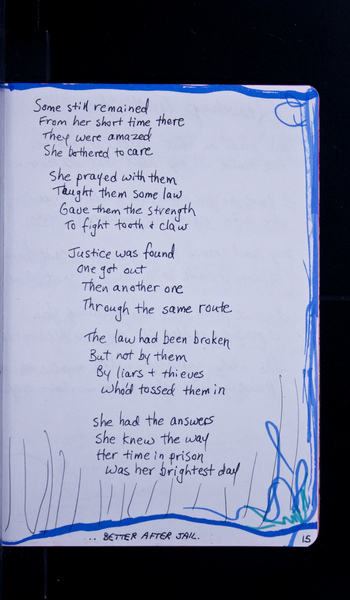 Some still remained
From her short time there
They were amazed
She bothered to care
She prayed with them
Taught them some law
Gave them the strength
To fight tooth & claw
Justice was found
One got out
Then another one
Through the same route
The law had been broken
But not by them
By liars + thieves
Who'd tossed them in
She had the answers
She knew the way
Her time in prison
Was her brightest day
... BETTER AFTER JAIL.
15